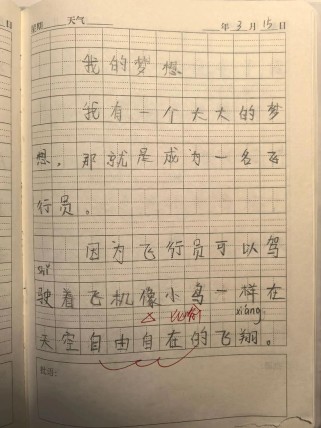 星期 天气 年3月15日
我的梦想
我有一个大大的梦
想，那就是成为一名飞
行员。
因为飞行员可以驾
shǐ
驶着飞机像小鸟一样在
xiáng
天空自由自在的飞翔。
批语：